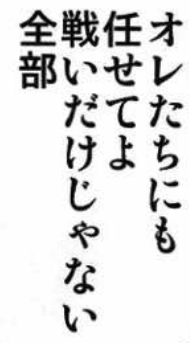 オレたちにも
任せてよ
戦いだけじゃない
全部